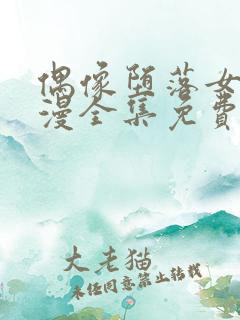 偶像堕落女
漫全集免费
大老猫
未经同意禁止转载